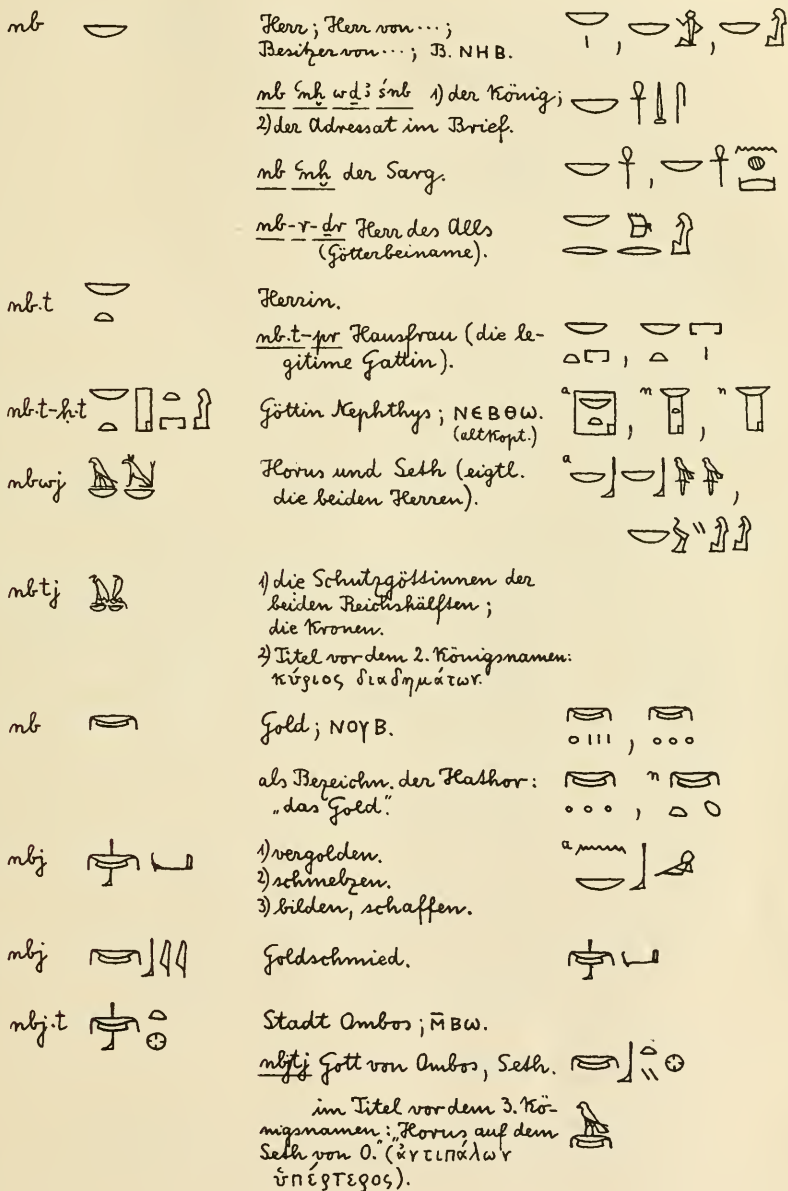 nb 𓎟 Herr; Herr von ...; 𓎟𓏤, 𓎟𓀀, 𓎟𓀭
Besitzer von ...; B. ⲚⲎⲂ.
nb ꜥnḫ wḏꜣ śnb 1) der König; 𓎟𓋹𓍑𓋴
2) der Adressat im Brief.
nb ꜥnḫ der Sarg. 𓎟𓋹, 𓎟𓋹
nb-r-ḏr Herr des Alls
(Götterbeiname).
nb.t 𓎟𓏏 Herrin.
nb.t-pr Hausfrau (die le- 𓎟𓏏𓉐, 𓎟𓏏𓉐𓏤
gitime Gattin).
nb.t-ḥ.t Göttin Nephthys; ⲚⲈⲂⲐⲰ. a 𓉠, n 𓉠, n
(altkopt.)
nbwj Horus und Seth (eigtl. a 𓎟𓃀𓎟𓃀𓅆𓅆,
die beiden Herren).
nbtj 𓅒 1) die Schutzgöttinnen der
beiden Reichshälften;
die Kronen.
2) Titel vor dem 2. Königsnamen:
κύριος διαδημάτων.
nb 𓋞 Gold; ⲚⲞⲨⲂ. 𓋞𓈒𓏥, 𓋞𓈒𓈒𓈒
als Bezeichn. der Hathor: 𓋞𓈒𓈒𓈒, n 𓋞𓏏𓆇
„das Gold“.
nbj 𓋟𓂡 1) vergolden. a 𓈖𓎟𓃀
2) schmelzen.
3) bilden, schaffen.
nbj 𓋞𓃀𓇌 Goldschmied. 𓋟𓂡
nbj.t 𓋟𓏏𓊖 Stadt Ombos; Ⲙ̄ⲂⲰ.
nbjtj Gott von Ombos, Seth. 𓋞𓃀𓏏𓏭𓊖
im Titel vor dem 3. Kö- 𓅉
nigsnamen: „Horus auf dem
Seth von O.“ (ἀντιπάλων
ὑπέρτερος).